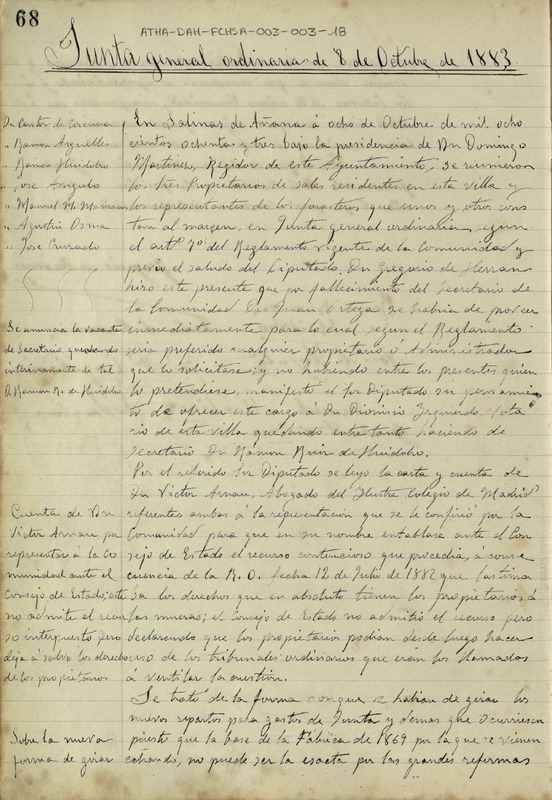 68
ATHA-DAH-FCHSA-003-003-18
Junta general ordinaria de 8 de Octubre de 1883
Dn Castor de
" Ramon Arguelles
" Ramon Huidobro
" Jose Angulo
" Manuel M.
" Agustin Osma
" Jose Cruzado
Se anuncia la vacante
de Secretario, quedando
interinamente de tal
D. Ramon R. de Huidobro
Cuenta de Dn
Victor Arnau, por
representar á la Co
munidad ante el
Consejo de Estado; este
no admite el recur
so interpuesto pero
deja á salvo los derechos
de los propietarios
Sobre la nueva
forma de girar
En Salinas de Añana á ocho de Octubre de mil ocho
cientos ochenta y tres bajo la presidencia de Dn Domingo
Martinez, Regidor de este Ayuntamiento, se reunieron
los Sres Propietarios de Sales residentes en esta villa y
los representantes de los forasteros que unos y otros cons
tan al margen, en Junta general ordinaria, segun
el artº 7º del Reglamento vigente de la Comunidad y
previo el saludo del Diputado, Dn Gregorio de Herran
hizo este presente que por fallecimiento del Secretario de
la Comunidad Dn Juan Ortega se habia de proveer
inmediatamente para lo cual segun el Reglamento
seria preferido cualquier propietario ó Administrador
que lo solicitase; y no habiendo entre los presentes quien
lo pretendiese, manifestó el Sor Diputado su pensamien
to de ofrecer este cargo á Dn Dionisio Izquierdo Nota
rio de esta villa quedando entre tanto haciendo de
Secretario Dn Ramon Ruiz de Huidobro.
Por el referido Sor Diputado se leyó la carta y cuenta de
Dn Victor Arnau, Abogado del Ilustre Colegio de Madrid
referentes ambas á la representacion que se le confirió por la
Comunidad para que en su nombre entablase ante el Con
sejo de Estado el recurso contencioso que procedia, á conse
cuencia de la R. O. fecha 12 de Julio de 1882 que lastima
ba los derechos que en absoluto tienen los propietarios á
las mueras; el Consejo de Estado no admitió el recurso pero
declarando que los propietarios podian desde luego hacer
uso de los tribunales ordinarios que eran los llamados
á ventilar la cuestion.
Se trató de la forma conque se habian de girar los
nuevos repartos para gastos de Junta y demas que ocurriesen
puesto que la base de la Fábrica de 1869 por la que se vienen
echando, no puede ser la exacta por las grandes reformas